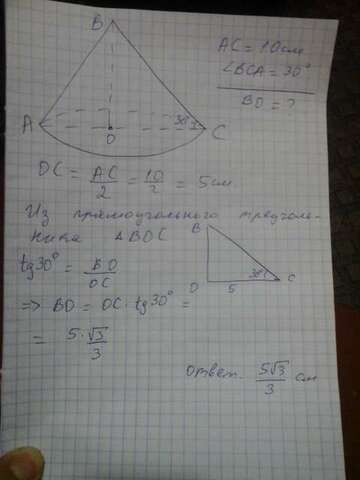 B
A
O
C
30°
AC = 10 см
∠BCA = 30°
BO = ?
OC = AC/2 = 10/2 = 5 см
Из прямоугольного треуголь-
ника △BOC
B
O
5
30°
C
tg30° = BO/OC
=> BO = OC · tg30° =
= 5·√3/3
ответ. 5√3/3 см